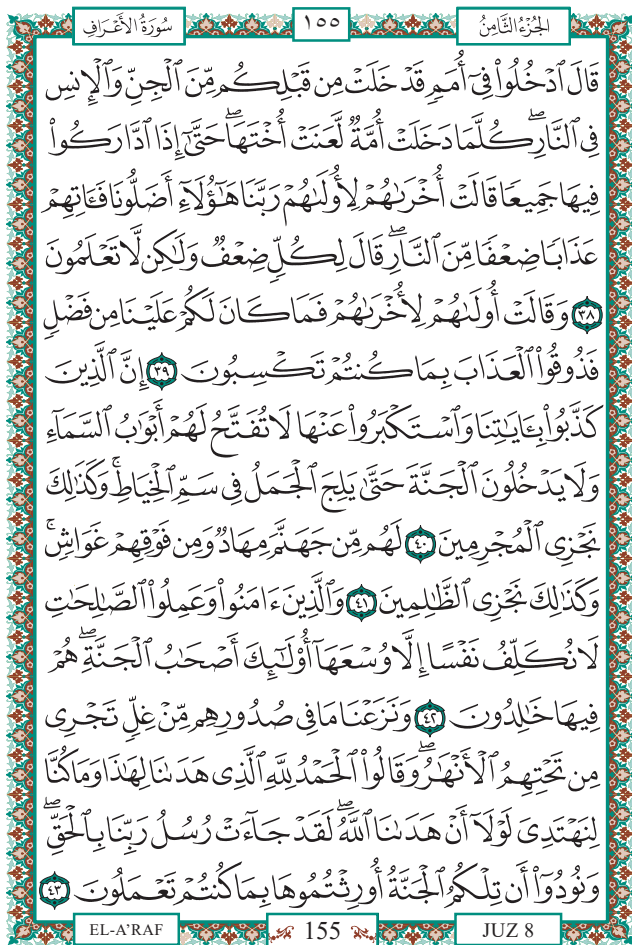 سُورَةُ الأَعْرَافِ ١٥٥ الجُزْءُ الثَّامِنُ
قَالَ ٱدۡخُلُواْ فِيٓ أُمَمٖ قَدۡ خَلَتۡ مِن قَبۡلِكُم مِّنَ ٱلۡجِنِّ وَٱلۡإِنسِ
فِي ٱلنَّارِۖ كُلَّمَا دَخَلَتۡ أُمَّةٞ لَّعَنَتۡ أُخۡتَهَاۖ حَتَّىٰٓ إِذَا ٱدَّارَكُواْ
فِيهَا جَمِيعٗا قَالَتۡ أُخۡرَىٰهُمۡ لِأُولَىٰهُمۡ رَبَّنَا هَٰٓؤُلَآءِ أَضَلُّونَا فَـَٔاتِهِمۡ
عَذَابٗا ضِعۡفٗا مِّنَ ٱلنَّارِۖ قَالَ لِكُلّٖ ضِعۡفٞ وَلَٰكِن لَّا تَعۡلَمُونَ
٣٨ وَقَالَتۡ أُولَىٰهُمۡ لِأُخۡرَىٰهُمۡ فَمَا كَانَ لَكُمۡ عَلَيۡنَا مِن فَضۡلٖ
فَذُوقُواْ ٱلۡعَذَابَ بِمَا كُنتُمۡ تَكۡسِبُونَ ٣٩ إِنَّ ٱلَّذِينَ
كَذَّبُواْ بِـَٔايَٰتِنَا وَٱسۡتَكۡبَرُواْ عَنۡهَا لَا تُفَتَّحُ لَهُمۡ أَبۡوَٰبُ ٱلسَّمَآءِ
وَلَا يَدۡخُلُونَ ٱلۡجَنَّةَ حَتَّىٰ يَلِجَ ٱلۡجَمَلُ فِي سَمِّ ٱلۡخِيَاطِۚ وَكَذَٰلِكَ
نَجۡزِي ٱلۡمُجۡرِمِينَ ٤٠ لَهُم مِّن جَهَنَّمَ مِهَادٞ وَمِن فَوۡقِهِمۡ غَوَاشٖۚ
وَكَذَٰلِكَ نَجۡزِي ٱلظَّٰلِمِينَ ٤١ وَٱلَّذِينَ ءَامَنُواْ وَعَمِلُواْ ٱلصَّٰلِحَٰتِ
لَا نُكَلِّفُ نَفۡسًا إِلَّا وُسۡعَهَآ أُوْلَٰٓئِكَ أَصۡحَٰبُ ٱلۡجَنَّةِۖ هُمۡ
فِيهَا خَٰلِدُونَ ٤٢ وَنَزَعۡنَا مَا فِي صُدُورِهِم مِّنۡ غِلّٖ تَجۡرِي
مِن تَحۡتِهِمُ ٱلۡأَنۡهَٰرُۖ وَقَالُواْ ٱلۡحَمۡدُ لِلَّهِ ٱلَّذِي هَدَىٰنَا لِهَٰذَا وَمَا كُنَّا
لِنَهۡتَدِيَ لَوۡلَآ أَنۡ هَدَىٰنَا ٱللَّهُۖ لَقَدۡ جَآءَتۡ رُسُلُ رَبِّنَا بِٱلۡحَقِّۖ
وَنُودُوٓاْ أَن تِلۡكُمُ ٱلۡجَنَّةُ أُورِثۡتُمُوهَا بِمَا كُنتُمۡ تَعۡمَلُونَ ٤٣
EL-A'RAF 155 JUZ 8